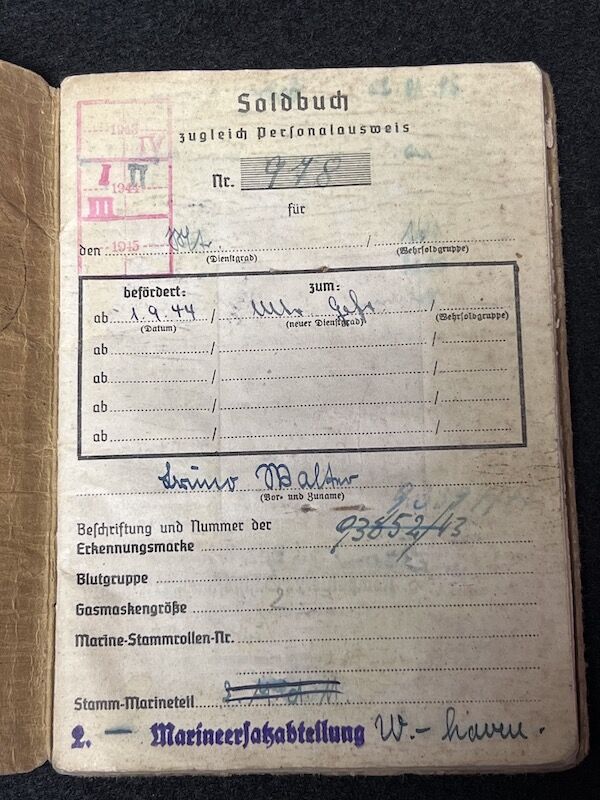 Soldbuch
zugleich Personalausweis
1943 IV
I II
1944
III
1945
Nr. 978
für
den / 
(Dienstgrad) (Wehrsoldgruppe)
befördert: zum:
ab 1.9.44 / Mtr. Gefr. /
(Datum) (neuer Dienstgrad) (Wehrsoldgruppe)
ab / /
ab / /
ab / /
ab / /
Bruno Walter
(Vor- und Zuname)
Beschriftung und Nummer der
Erkennungsmarke 93852/43
Blutgruppe
Gasmaskengröße 2
Marine-Stammrollen-Nr.
Stamm-Marineteil
2. — Marineersatzabteilung W.-haven.